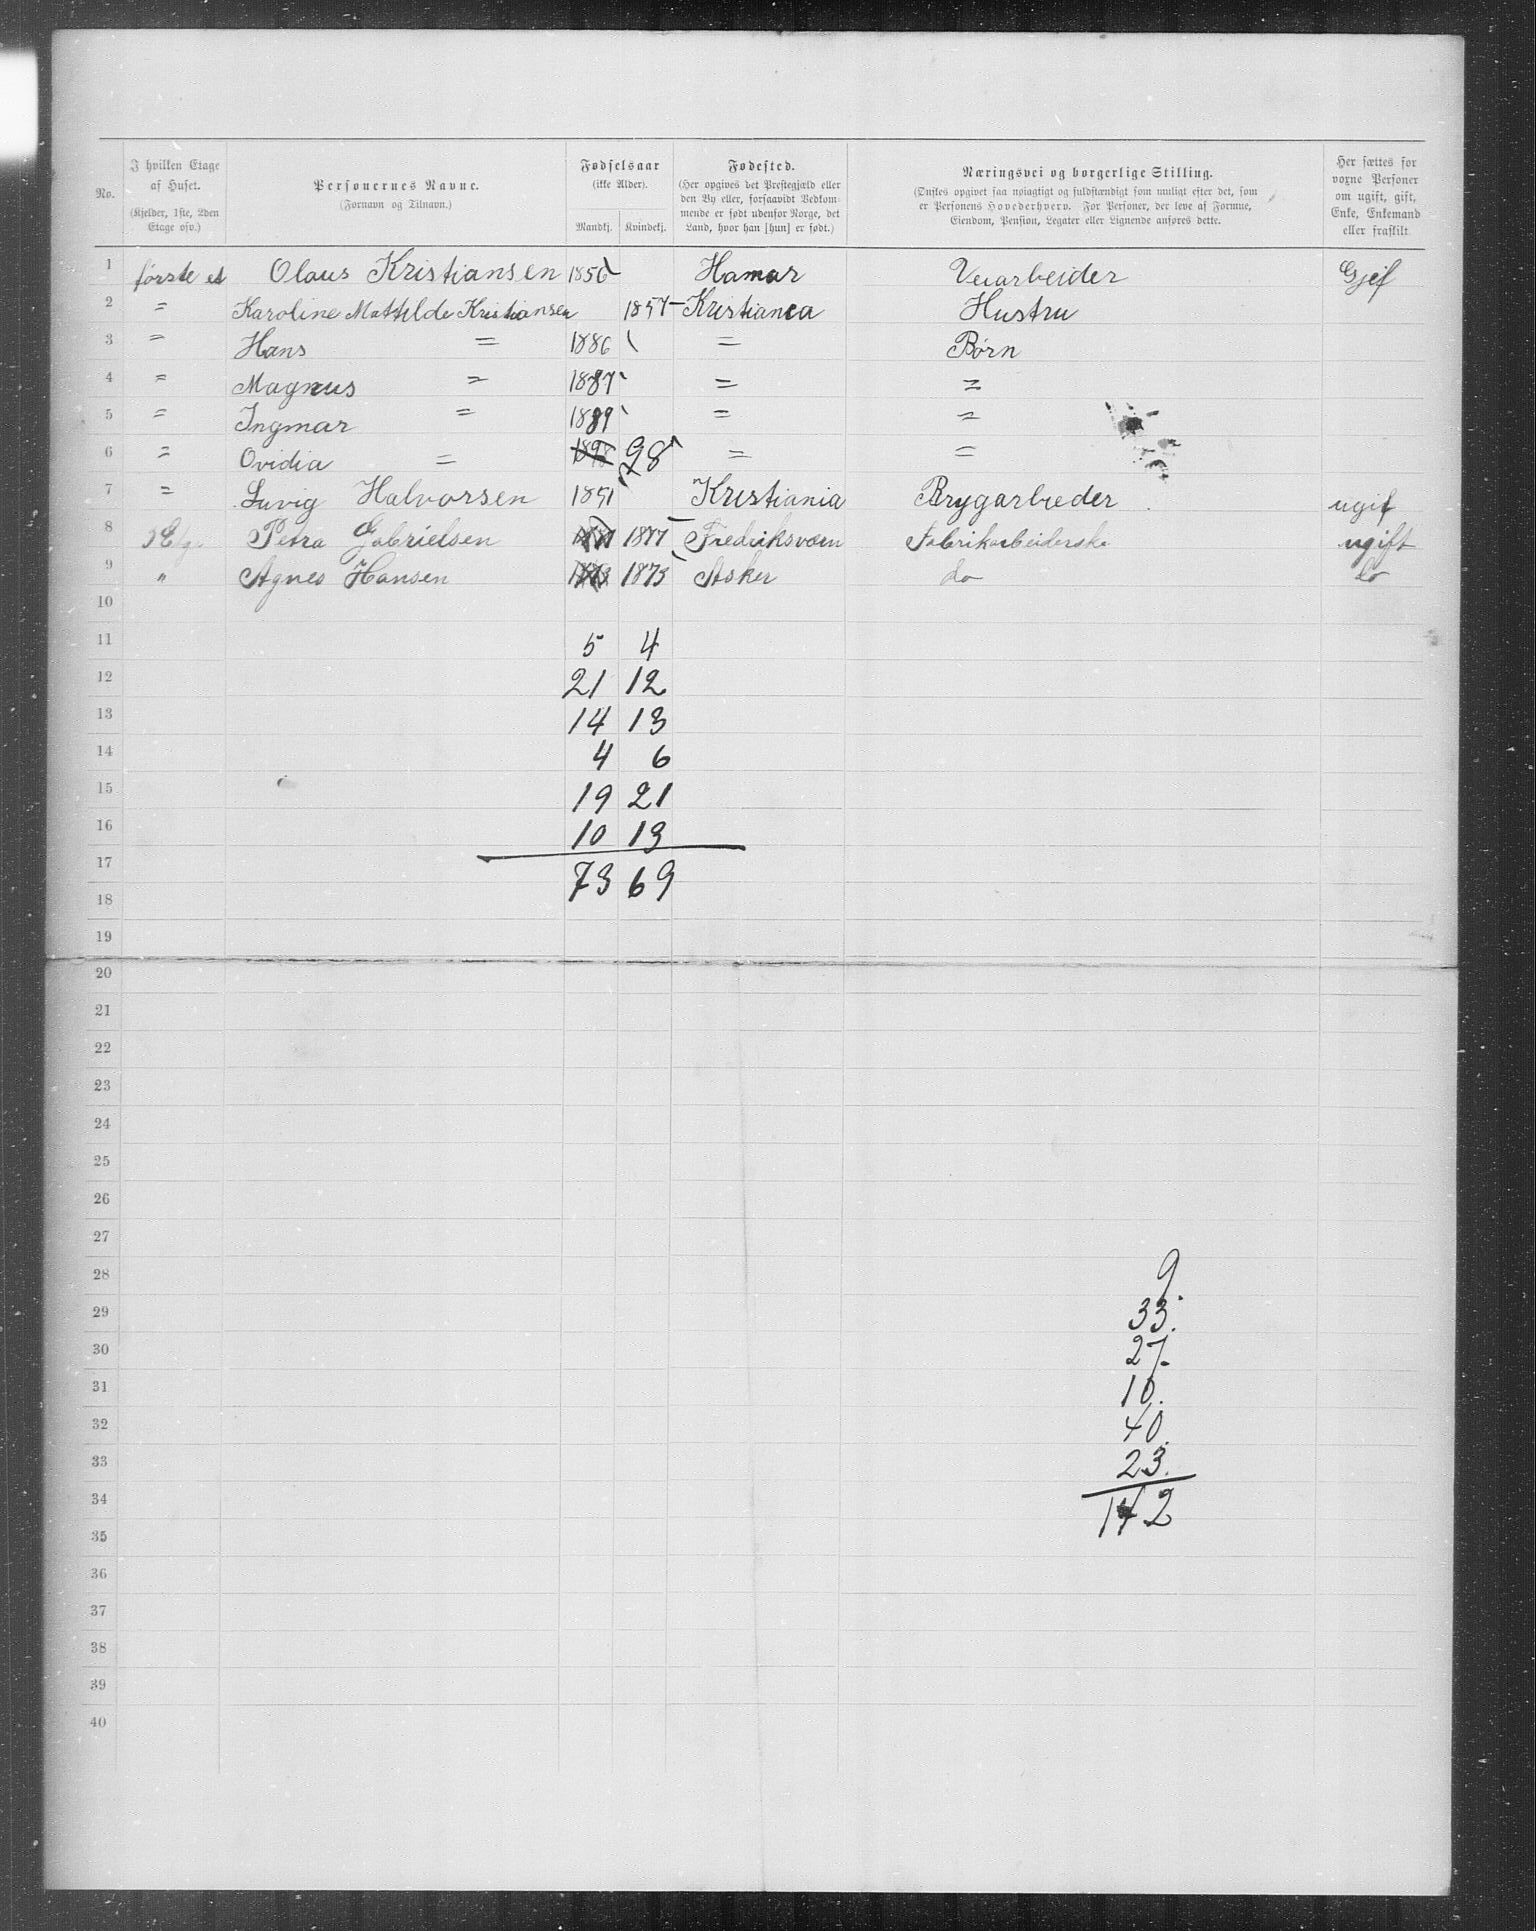 No. | I hvilken Etage af Huset. (Kjelder, 1ste, 2den Etage osv.) | Personernes Navne. (Fornavn og Tilnavn.) | Fødselsaar (ikke Alder). Mandkj. | Kvindekj. | Fødested. (Her opgives det Prestegjæld eller den By eller, forsaavidt Vedkommende er født udenfor Norge, det Land, hvor han [hun] er født.) | Næringsvei og borgerlige Stilling. (Ønskes opgivet saa nøiagtigt og fuldstændigt som muligt efter det, som er Personens Hovederhverv. For Personer, der leve af Formue, Eiendom, Pension, Legater eller Lignende anføres dette. | Her sættes for voxne Personer om ugift, gift, Enke, Enkemand eller fraskilt.
1 første et Olaus Kristiansen 1856 Hamar Veiarbeider Gjef
2 = Karoline Mattilde Kristiansen 1857 Kristiania Hustru
3 = Hans = 1886 = Børn
4 = Magnus = 1887 = =
5 = Ingmar = 1889 = =
6 = Ovidia = 1898 98 = =
7 = Luvig Halvorsen 1851 Kristiania Brygarbeder ugif
8 Petra Gabrielsen 1877 Fredriksværn Fabrikarbeiderske ugift
9 " Agnes Hansen 1873 1873 Asker do do
10
11 5 4
12 21 12
13 14 13
14 4 6
15 19 21
16 10 13
17 73 69
18
19
20
21
22
23
24
25
26
27
28 9.
29 33.
30 27.
31 10.
32 40.
33 23.
34 142
35
36
37
38
39
40